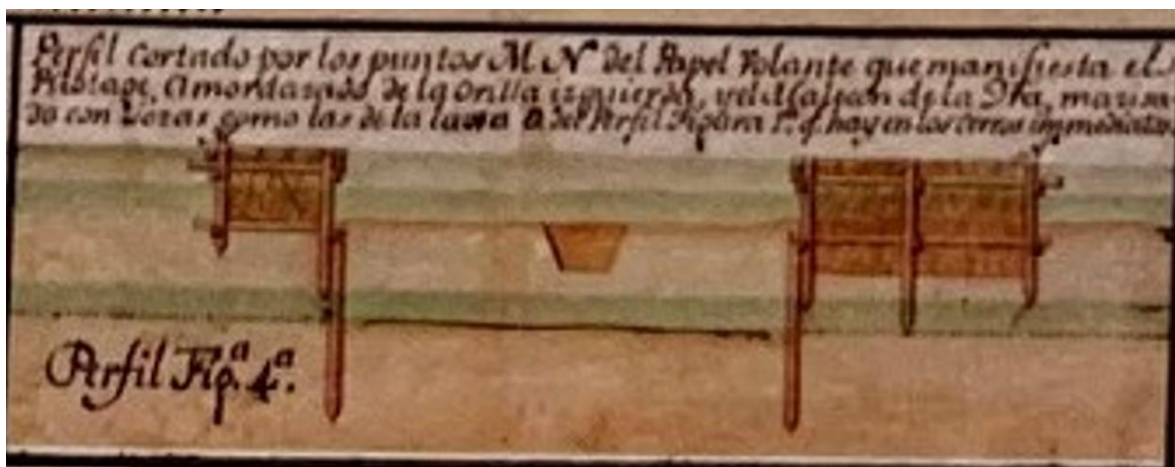 Perfil Cortado por los puntos M. N del Papel Volante que manifiesta el
Pilotage, Amordazado de la Orilla izquierda, y el de la Dra,
do con Lozas como las de la del Perfil Figura 1ª q. hay en los cerros immediatos
Perfil Figª. 4ª.